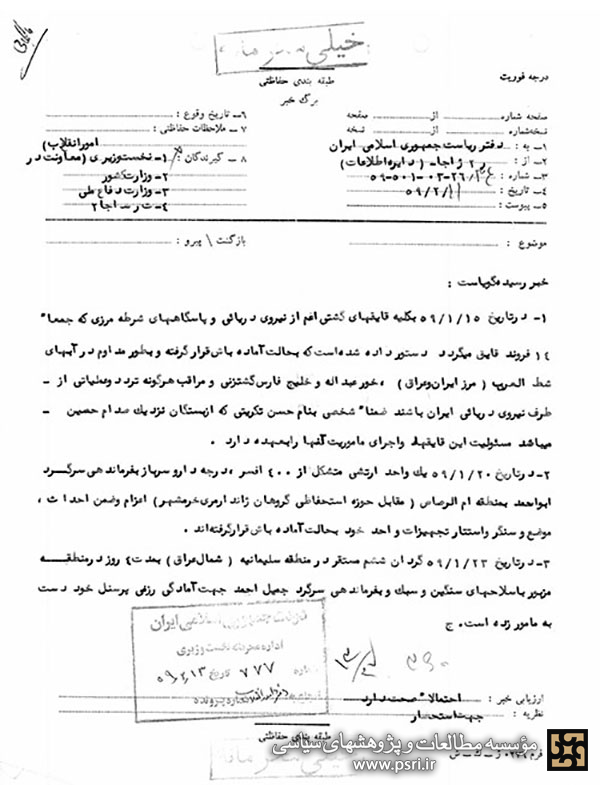 خیلی محرمانه
طبقه بندی حفاظتی
برگ خبر
درجه فوریت
صفحه شماره از صفحه
نسخه شماره از نسخه
۱- به : دفتر ریاست جمهوری اسلامی ایران
۲- از : ر۲ ژاجا (دایره اطلاعات)
۳- شماره : ۵۹-۵۰۱-۰۳-۲۶/
۴- تاریخ : ۵۹/۲/۱۱
۵- پیوست :
۶- تاریخ وقوع :
۷- ملاحظات حفاظتی :
امور انقلاب)
۸- گیرندگان : ۱- نخست وزیری (معاونت در
۲- وزارت کشور
۳- وزارت دفاع ملی
۴- ت ر سماجا۲
موضوع :
بازگشت \ پیرو :
خبر رسیده گویاست :
۱- در تاریخ ۵۹/۱/۱۵ بکلیه قایقهای گشتی اعم از نیروی دریائی و پاسگاههای شرطه مرزی که جمعا"
۱۴ فروند قایق میگردد دستور داده شده است که بحالت آماده باش قرار گرفته و بطور مداوم در آبهای
شط العرب (مرز ایران وعراق) ، خور عبداله و خلیج فارس گشتزنی و مراقب هرگونه تردد وعملیاتی از -
طرف نیروی دریائی ایران باشند ضمنا" شخصی بنام حسن تکریتی که ازبستگان نزدیک صدام حسین -
میباشد مسئولیت این قایقها واجرای ماموریت آنها رابعهده دارد .
۲- در تاریخ ۵۹/۱/۲۰ یک واحد ارتشی متشکل از ۴۰۰ افسر ، درجه دار و سرباز بفرماندهی سرگرد
ابواحمد بمنطقه ام الرصاص (مقابل حوزه استحفاظی گروهان ژاندارمری خرمشهر) اعزام وضمن احداث ،
موضع و سنگر واستتار تجهیزات واحد خود بحالت آماده باش قرار گرفته اند .
۳- در تاریخ ۵۹/۱/۲۳ گردان ششم مستقر در منطقه سلیمانیه (شمال عراق) بمدت ۴ روز در منطقه
مزبور با سلاحهای سنگین و سبک و بفرماندهی سرگرد جمیل احمد جهت آمادگی رزمی پرسنل خود دست
به مانور زده است . ج
جمهوری اسلامی ایران
اداره محرمانه نخست وزیری
شماره ۷۷۷ تاریخ ۵۹/۲/۱۳
ارزیابی خبر : احتمالا" صحت دارد
نظریه : جهت استحضار
طبقه بندی حفاظتی
خیلی محرمانه
مؤسسه مطالعات و پژوهشهای سیاسی
www.psri.ir